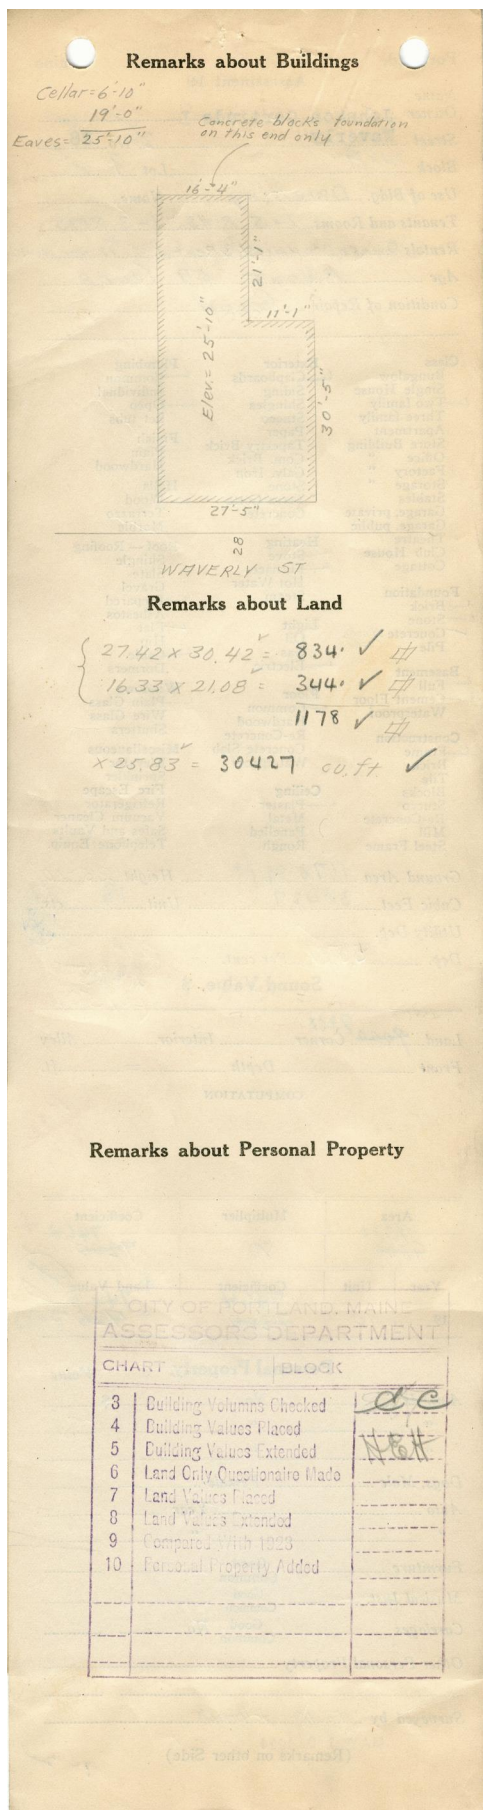 Remarks about Buildings
Cellar = 6'-10"
19'-0"
Eaves = 25'-10"
Concrete blocks foundation
on this end only
16'-4"
21'-1"
11'-1"
Elev. = 25'-10"
30'-5"
27'-5"
28
WAVERLY ST
Remarks about Land
27.42 x 30.42 = 834. ✓
16.33 x 21.08 = 344. ✓
1178 ✓
x 25.83 = 30427 cu. ft ✓
Remarks about Personal Property
CITY OF PORTLAND, MAINE
ASSESSORS DEPARTMENT
CHART BLOCK
3 Building Volumns Checked CC
4 Building Values Placed
5 Building Values Extended HEH
6 Land Only Questionaire Made
7 Land Values Placed
8 Land Values Extended
9 Compared With 1923
10 Personal Property Added